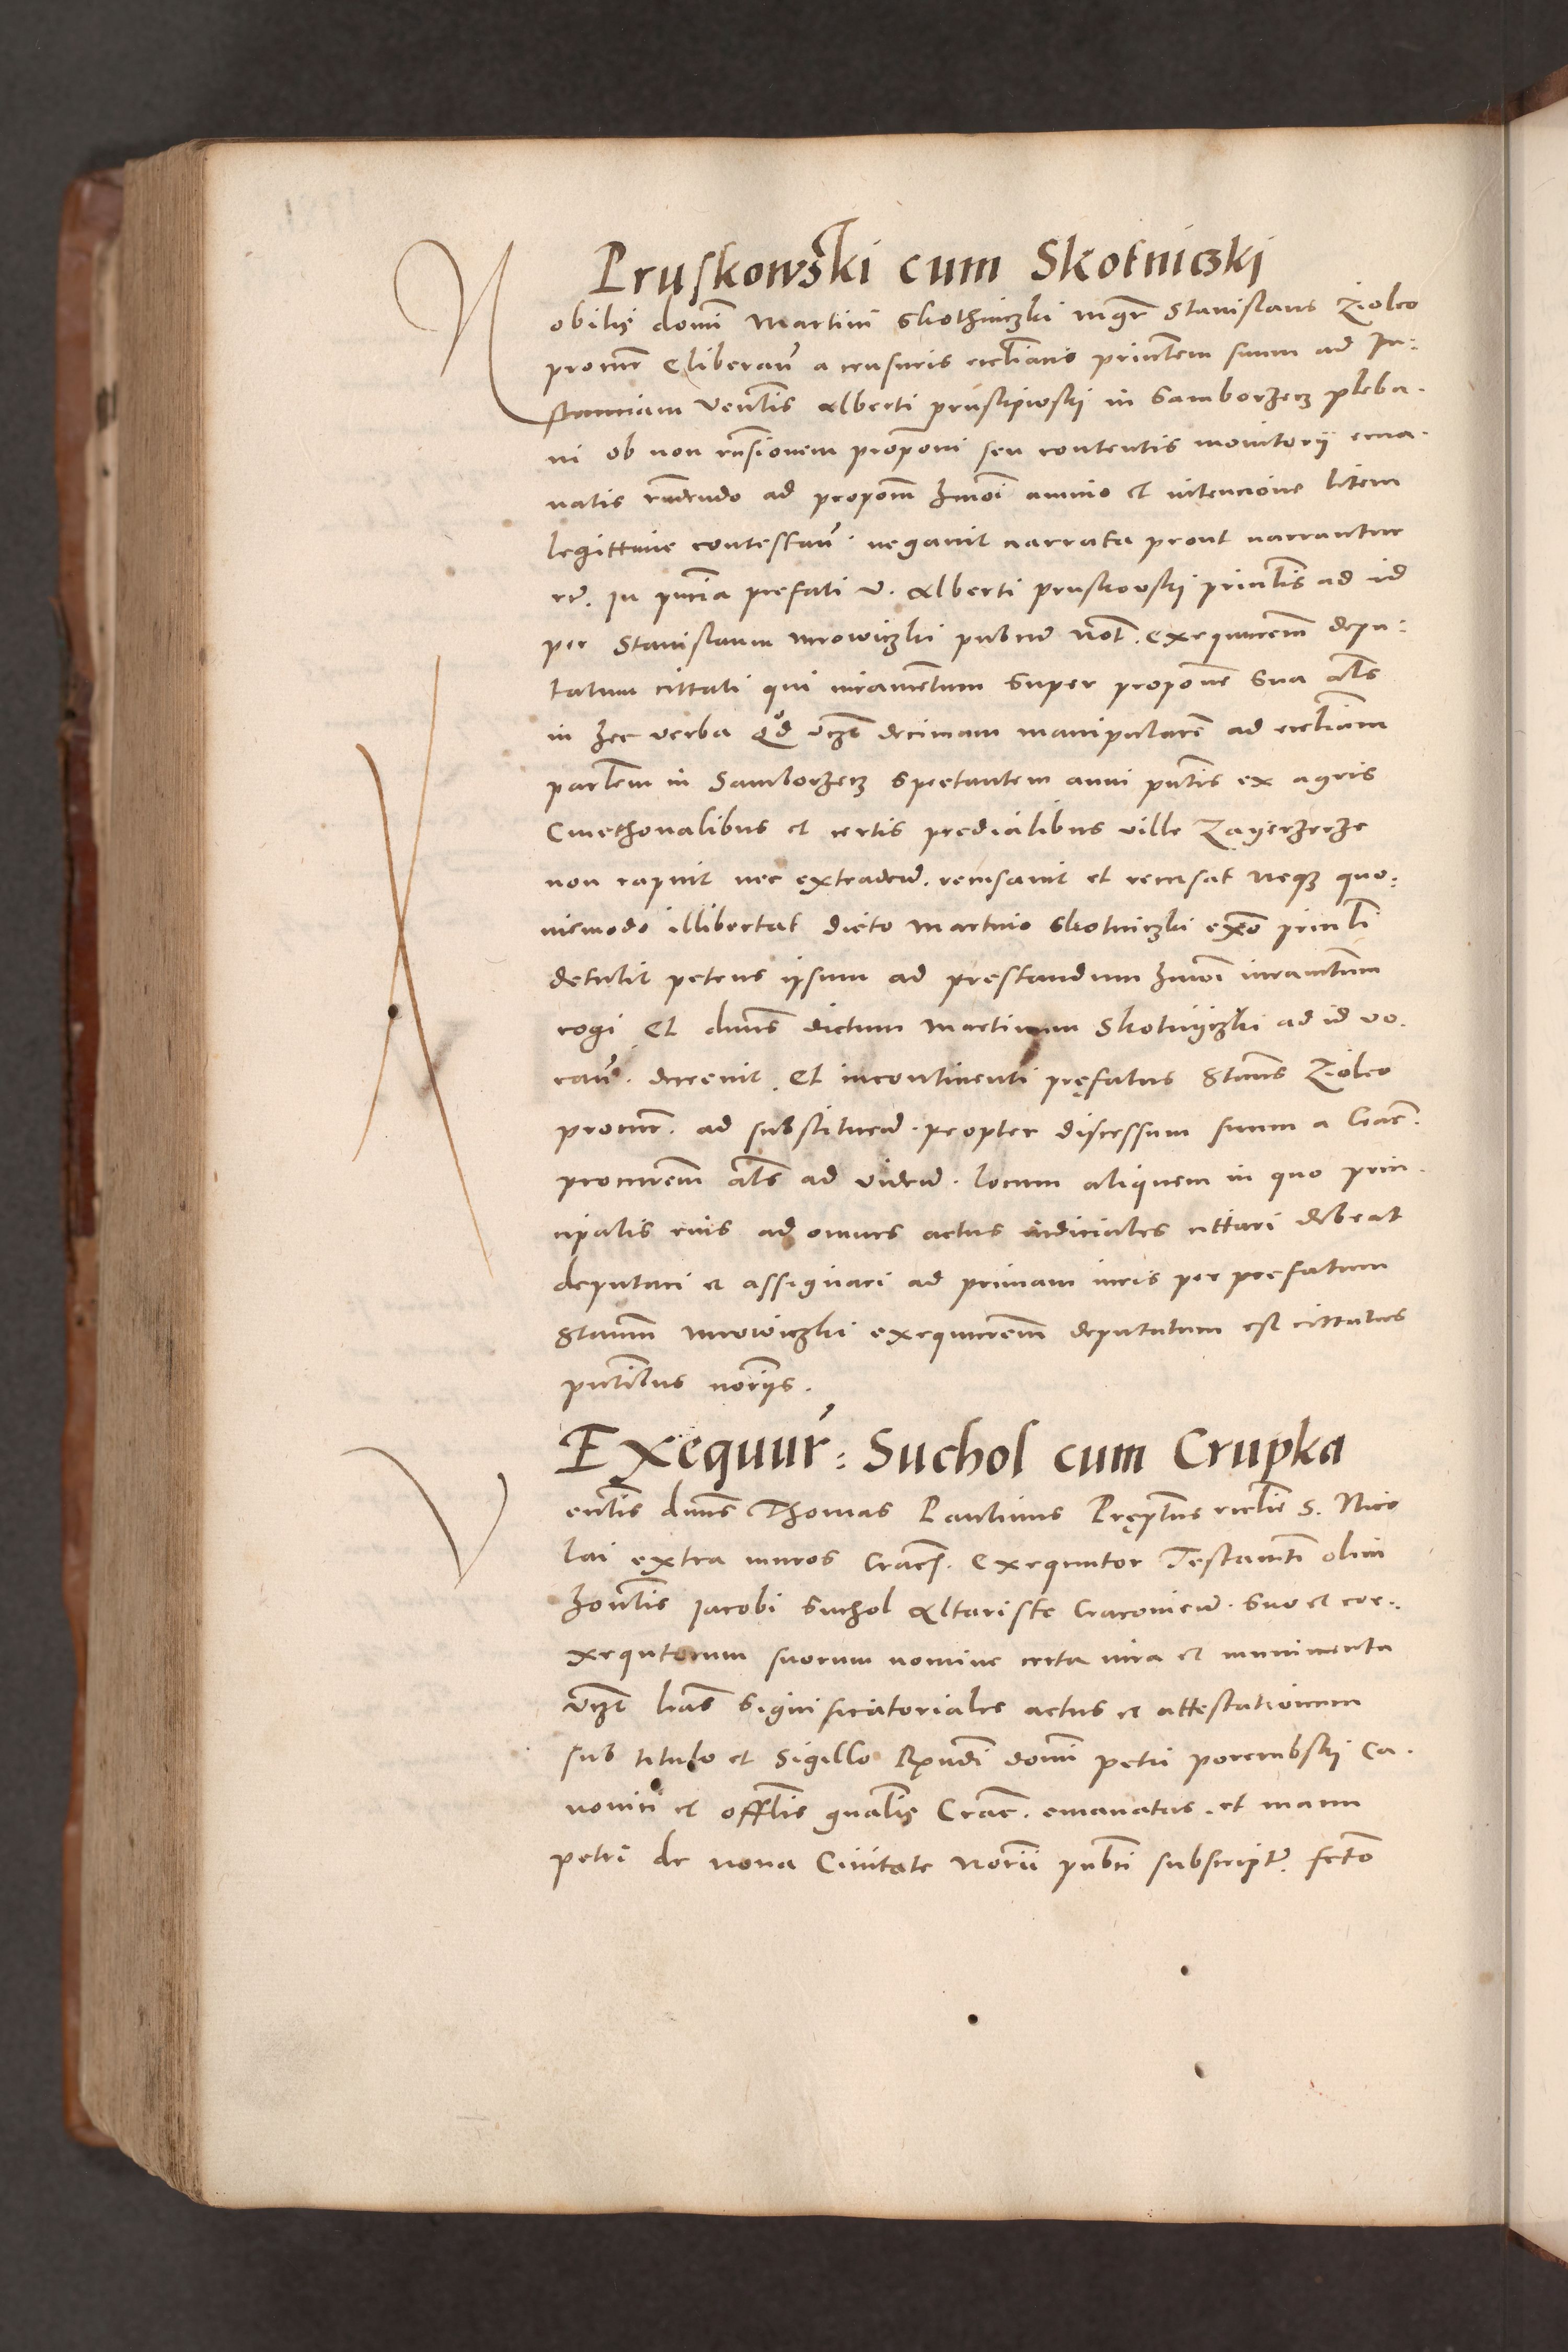 Pruskowski cum Skotniczki
Nobilis domini Martini Skothniczki mgr Stanislaus Ziolco
procur eliberaū a censuris ecclīanis princlem suum ad In:
stanciam venlis Alberti pruskowski in Samborzecz pleba-
ni ob non rnsionem proponi seu contentis monitorii ema-
natis rndendo ad proponm hmōi animo et intencione litem
legittime contestaū. negavit narrata prout narrantur
re. In pncia prefati v. Alberti pruskowski princlis ad id
per Stanislaum mrowiczki pubcum Not. exequutorem depu:
tatum cittati qui iuramentum super propone sua als
in hec verba Qd vzt decimam manipularē ad ecclīam
parlem in Samborzecz spectantem anni pntis ex agris
Cmethonalibus et certis predialibus ville Zayerzerze
non rapuit nec extradeū. recusavit et recusat neqz quo:
vismodo illibertat dicto Martino Skotniczki exeo princli
detulit petens ipsum ad prestandum hmōi iuramtum
cogi Et dnus dictum Martinum Skotnyczki ad id vo-
caū. decrevit. Et incontinenti prefatus Stanus Ziolco
procur. ad substitueū. propter discessum suum a Crac.
procurem als ad videū. locum aliquem in quo prin-
cipalis eius ad omnes actus iudiciales cittari debeat
deputari et assignari ad primam iuris per prefatum
Stanum mrowiczki exequutorem deputatum est cittatus
pntibus noriis.
Exequur: Suchol cum Crupka
Venlis dnus Thomas Paulinus Preptus ecclie S. Nico
lai extra muros Crac. Exequutor Testamti olim
honlis Iacobi Suchol Altariste Cracovieū. suo et coe-
xequtorum suorum nomine certa iura et munimenta
vzt lras significatoriales actus et attestationum
sub titulo et sigillo Rxndi domi petri porembski Ca-
nonici et offlis gnalis Crac. emanatas. et manu
petri de nova Civitate Norii pubci subscriptū fcto